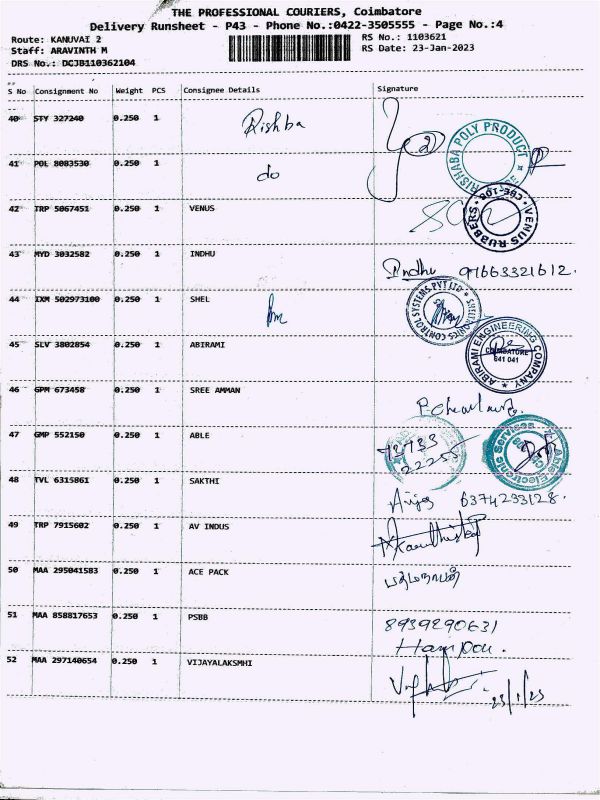 THE PROFESSIONAL COURIERS, Coimbatore
Delivery Runsheet - P43 - Phone No.:0422-3505555 - Page No.:4
Route: KANUVAI 2 RS No.: 1103621
Staff: ARAVINTH M RS Date: 23-Jan-2023
DRS No.: DCJB110362104
S No Consignment No Weight PCS Consignee Details Signature
40 STY 327240 0.250 1 Rishba
RISHABA POLY PRODUCT
41 POL 8083530 0.250 1 do
42 TRP 5067451 0.250 1 VENUS
VENUS RUBBERS
43 MYD 3032582 0.250 1 INDHU Indhu 91663321612.
44 IXM 502973100 0.250 1 SHEL
SHELTRONICS CONTROL SYSTEMS PVT LTD
45 SLV 3802854 0.250 1 ABIRAMI
ABIRAMI ENGINEERING COMPANY
COIMBATORE
641 041
46 GPM 673458 0.250 1 SREE AMMAN
47 GMP 552150 0.250 1 ABLE
73733
22255
Able Electronic Services
48 TVL 6315861 0.250 1 SAKTHI 6374233128.
49 TRP 7915602 0.250 1 AV INDUS
50 MAA 295041583 0.250 1 ACE PACK பத்மநாபன்
51 MAA 858817653 0.250 1 PSBB 8939290631
52 MAA 297140654 0.250 1 VIJAYALAKSMHI
23/1/23